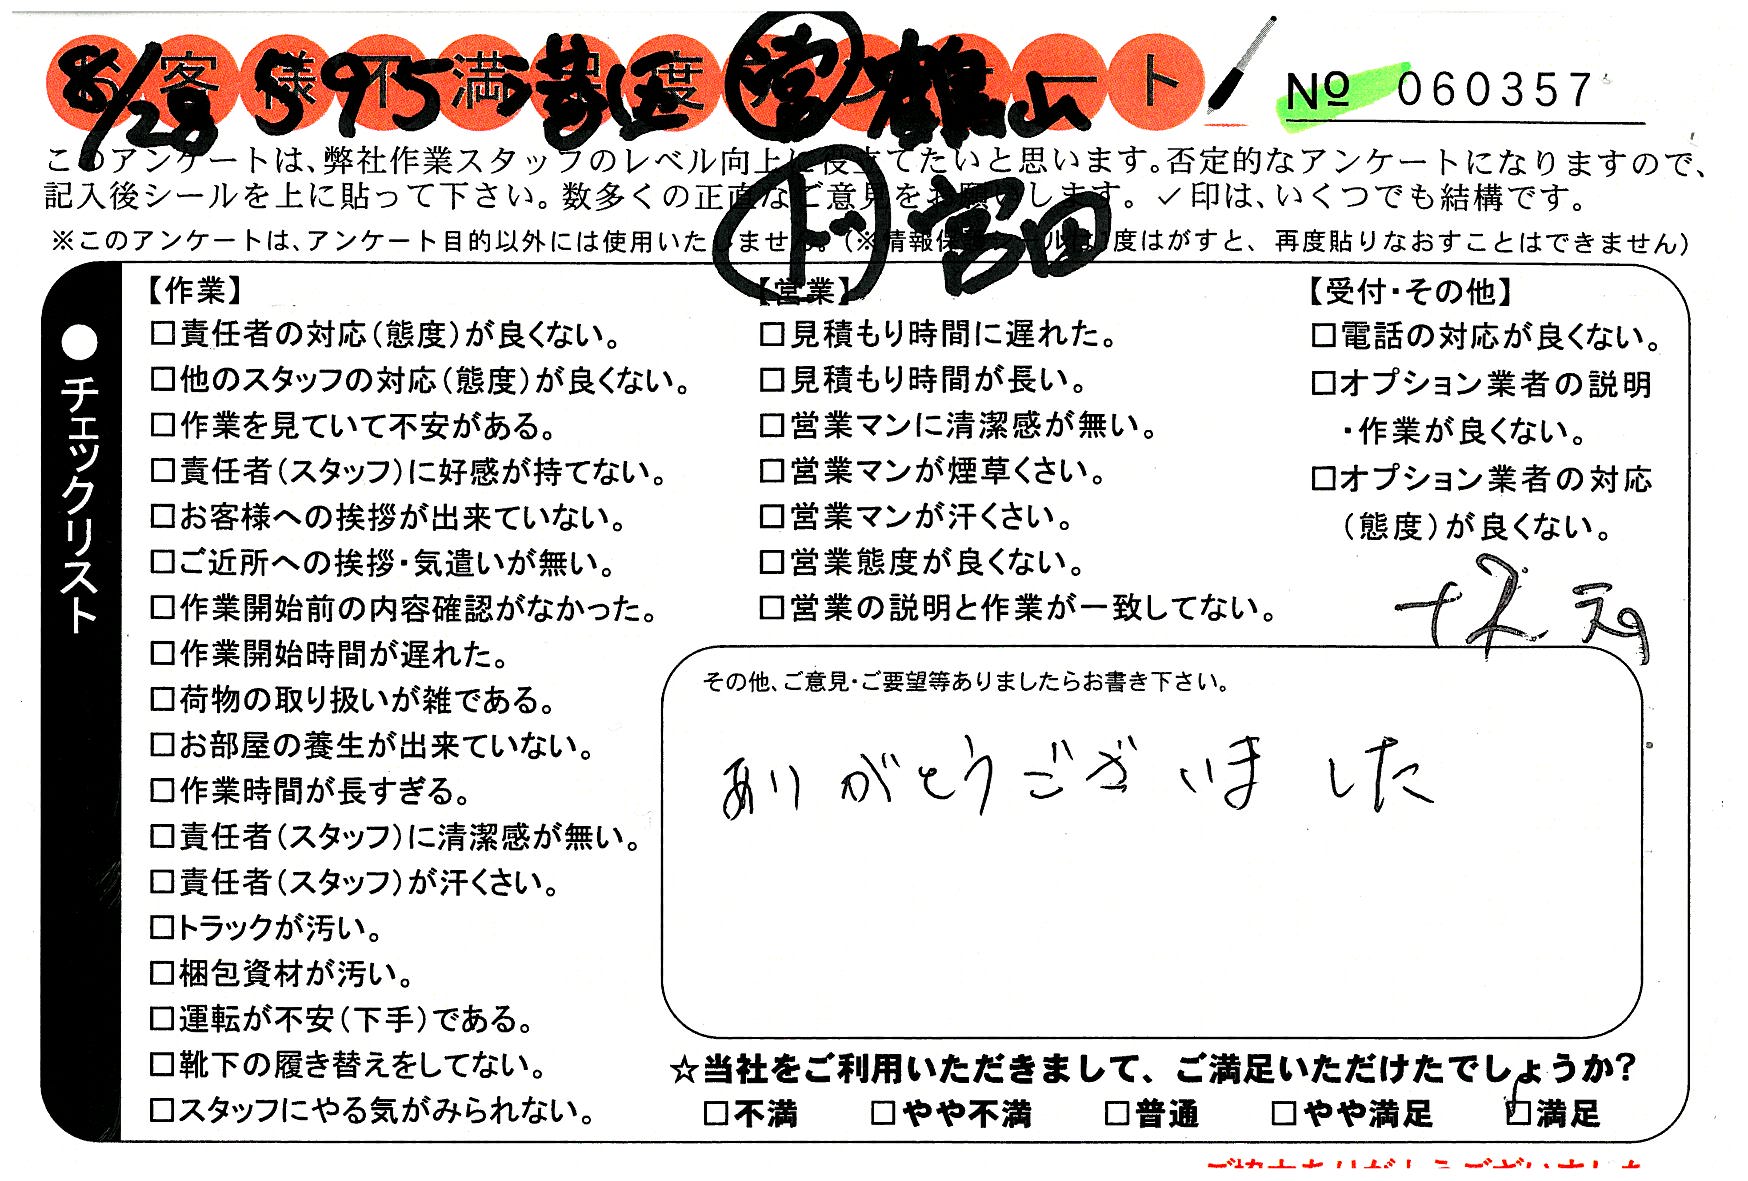 お客様不満足度アンケート
8/28 595 港区 営 鶴山
ド 宮田
No 060357
このアンケートは、弊社作業スタッフのレベル向上に役立てたいと思います。否定的なアンケートになりますので、
記入後シールを上に貼って下さい。数多くの正直なご意見をお願いします。✓印は、いくつでも結構です。
※このアンケートは、アンケート目的以外には使用いたしません。(※情報保護シールは1度はがすと、再度貼りなおすことはできません)
●チェックリスト
【作業】
□責任者の対応(態度)が良くない。
□他のスタッフの対応(態度)が良くない。
□作業を見ていて不安がある。
□責任者(スタッフ)に好感が持てない。
□お客様への挨拶が出来ていない。
□ご近所への挨拶・気遣いが無い。
□作業開始前の内容確認がなかった。
□作業開始時間が遅れた。
□荷物の取り扱いが雑である。
□お部屋の養生が出来ていない。
□作業時間が長すぎる。
□責任者(スタッフ)に清潔感が無い。
□責任者(スタッフ)が汗くさい。
□トラックが汚い。
□梱包資材が汚い。
□運転が不安(下手)である。
□靴下の履き替えをしてない。
□スタッフにやる気がみられない。
【営業】
□見積もり時間に遅れた。
□見積もり時間が長い。
□営業マンに清潔感が無い。
□営業マンが煙草くさい。
□営業マンが汗くさい。
□営業態度が良くない。
□営業の説明と作業が一致してない。
【受付・その他】
□電話の対応が良くない。
□オプション業者の説明
・作業が良くない。
□オプション業者の対応
(態度)が良くない。
その他、ご意見・ご要望等ありましたらお書き下さい。
ありがとうございました
☆当社をご利用いただきまして、ご満足いただけたでしょうか?
□不満 □やや不満 □普通 □やや満足 □満足
ご協力ありがとうございました